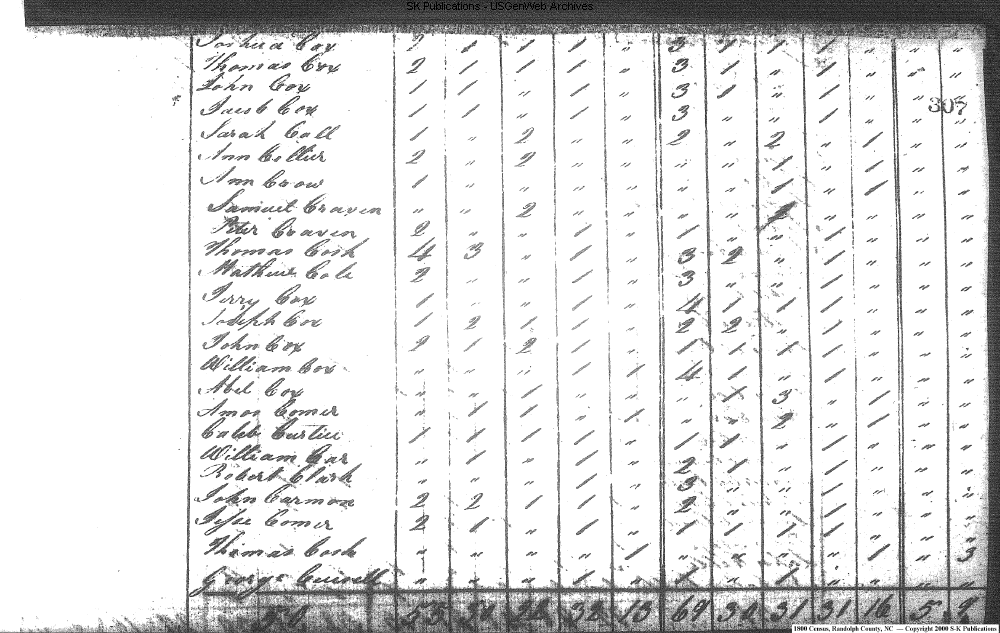 SK Publications - USGenWeb Archives
307
Joshua Cox 2 1 1 1 " 3 1 1 1 " " "
Thomas Cox 2 1 1 1 " 3 1 " 1 " " "
John Cox 1 1 " 1 " 3 1 " 1 " " "
Jacob Cox 1 1 " 1 " 3 " " 1 " " "
Sarah Call 1 " 2 " " 2 " 2 " 1 " "
Ann Collier 2 " 2 " " " " 1 " 1 " "
Ann Crow 1 " " " " " " 1 " 1 " "
Samuel Craven " " 2 " " " " " " " "
Peter Craven 2 " " 1 " 1 " " 1 " " "
Thomas 4 3 " 1 " 3 2 " 1 " " "
Mathew Cole 2 " " 1 " 3 " " 1 " " "
Cox 1 " " 1 " 4 1 1 1 " " "
Joseph Cox 1 2 1 1 " 2 2 " 1 " " "
John Cox 2 1 2 1 " 1 1 1 1 " " "
William Cox " " " 1 1 4 1 " 1 " " "
Abel Cox " " 1 1 " " 1 3 " 1 " "
Amos Comer " 1 1 " 1 " " 2 " 1 " "
Caleb 1 1 1 1 " 1 1 " 1 " " "
William " 1 " 1 " 2 1 " 1 " " "
Robert Clark " " " 1 " 3 " " 1 " " "
John Carmon 2 2 1 1 " 2 " " 1 " " "
Jesse Comer 2 1 " 1 " 1 1 1 1 " " "
Thomas " " " 1 " " " " 1 " 3
George " " " 1 " 1 " 1 " " " "
53 32 13 69 31 31 16 5 9
1800 Census, Randolph County, NC — Copyright 2000 S-K Publications